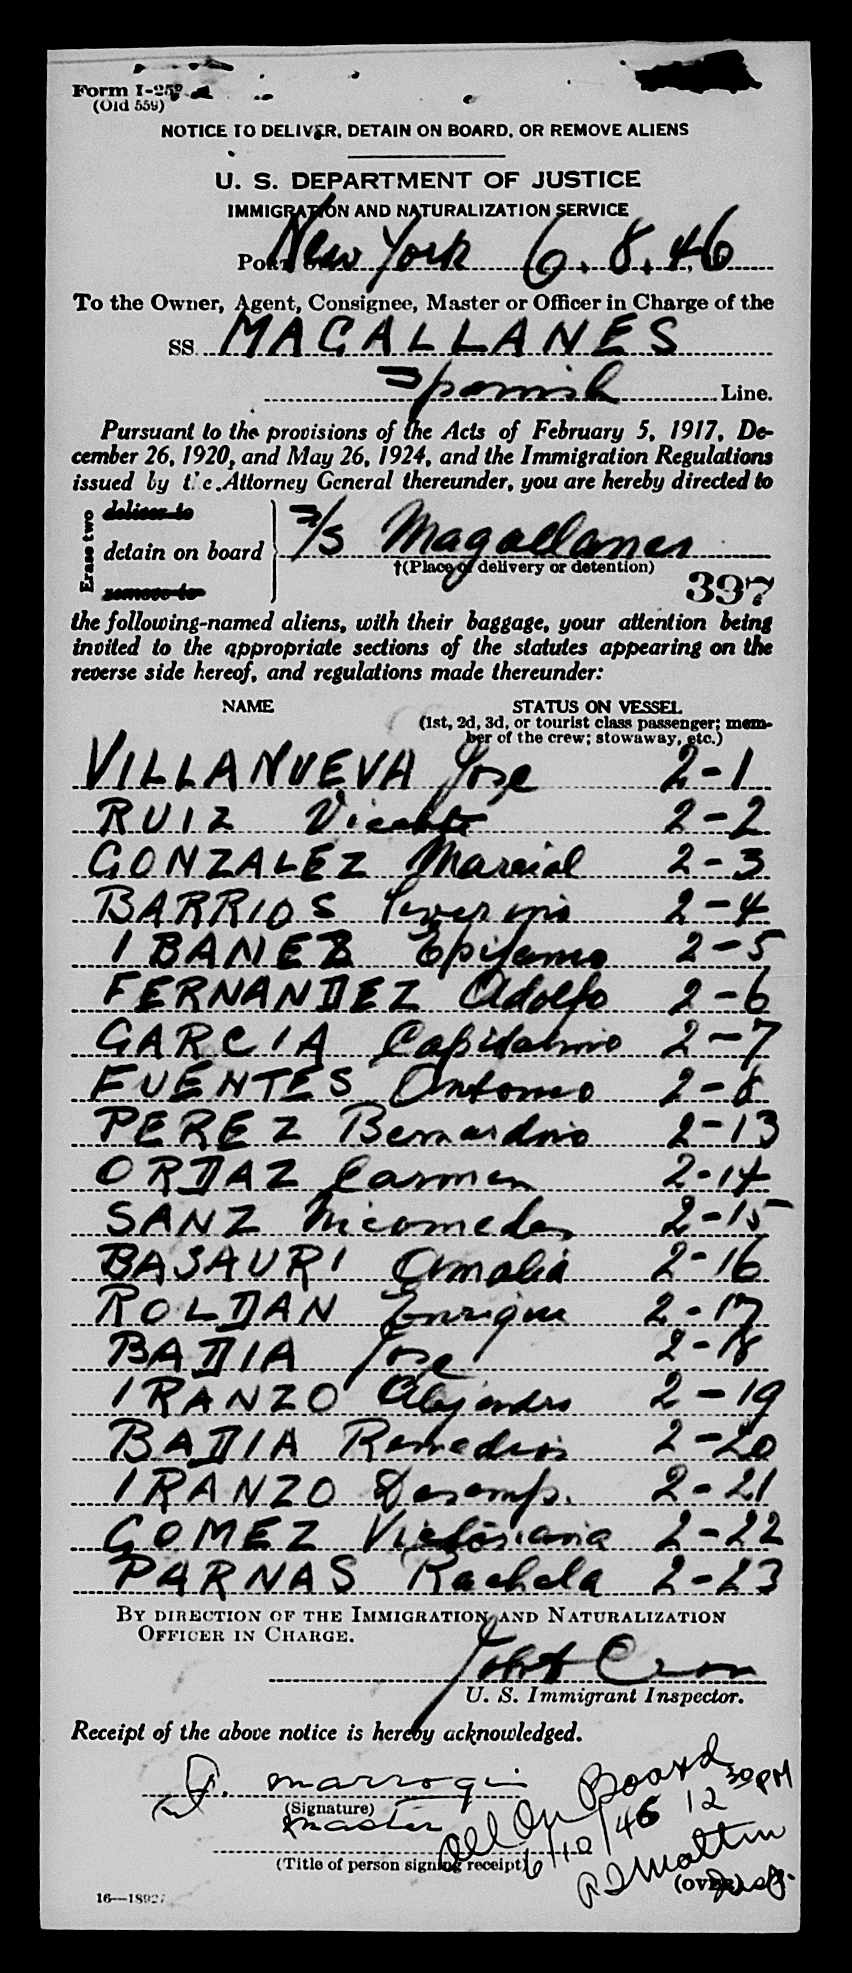 Form I-259
(Old 559)
NOTICE TO DELIVER, DETAIN ON BOARD, OR REMOVE ALIENS
U. S. DEPARTMENT OF JUSTICE
IMMIGRATION AND NATURALIZATION SERVICE
Port of New York 6.8.46
To the Owner, Agent, Consignee, Master or Officer in Charge of the
SS. MAGALLANES
Spanish Line.
Pursuant to the provisions of the Acts of February 5, 1917, De-
cember 26, 1920, and May 26, 1924, and the Immigration Regulations
issued by the Attorney General thereunder, you are hereby directed to
Erase two
deliver to
detain on board S/S Magallanes
†(Place of delivery or detention)
remove to
397
the following-named aliens, with their baggage, your attention being
invited to the appropriate sections of the statutes appearing on the
reverse side hereof, and regulations made thereunder:
NAME STATUS ON VESSEL
(1st, 2d, 3d, or tourist class passenger; mem-
ber of the crew; stowaway, etc.)
VILLANUEVA Jose 2-1
RUIZ Vicente 2-2
GONZALEZ Marcial 2-3
BARRIOS Severino 2-4
IBANEZ Epifanio 2-5
FERNANDEZ Adolfo 2-6
GARCIA Capitolino 2-7
FUENTES Antonio 2-8
PEREZ Bernardino 2-13
ORDAZ Carmen 2-14
SANZ Nicomedes 2-15
BASAURI Amalia 2-16
ROLDAN Enrique 2-17
BADIA Jose 2-18
IRANZO Alejandro 2-19
BADIA Remedios 2-20
IRANZO Desamp. 2-21
GOMEZ Victoriana 2-22
PARNAS Rachela 2-23
BY DIRECTION OF THE IMMIGRATION AND NATURALIZATION
OFFICER IN CHARGE.
U. S. Immigrant Inspector.
Receipt of the above notice is hereby acknowledged.
marroqui
(Signature)
master
(Title of person signing receipt)
All On Board
6/10/46 12 30 PM
Mattin
(OVER)
16—18927